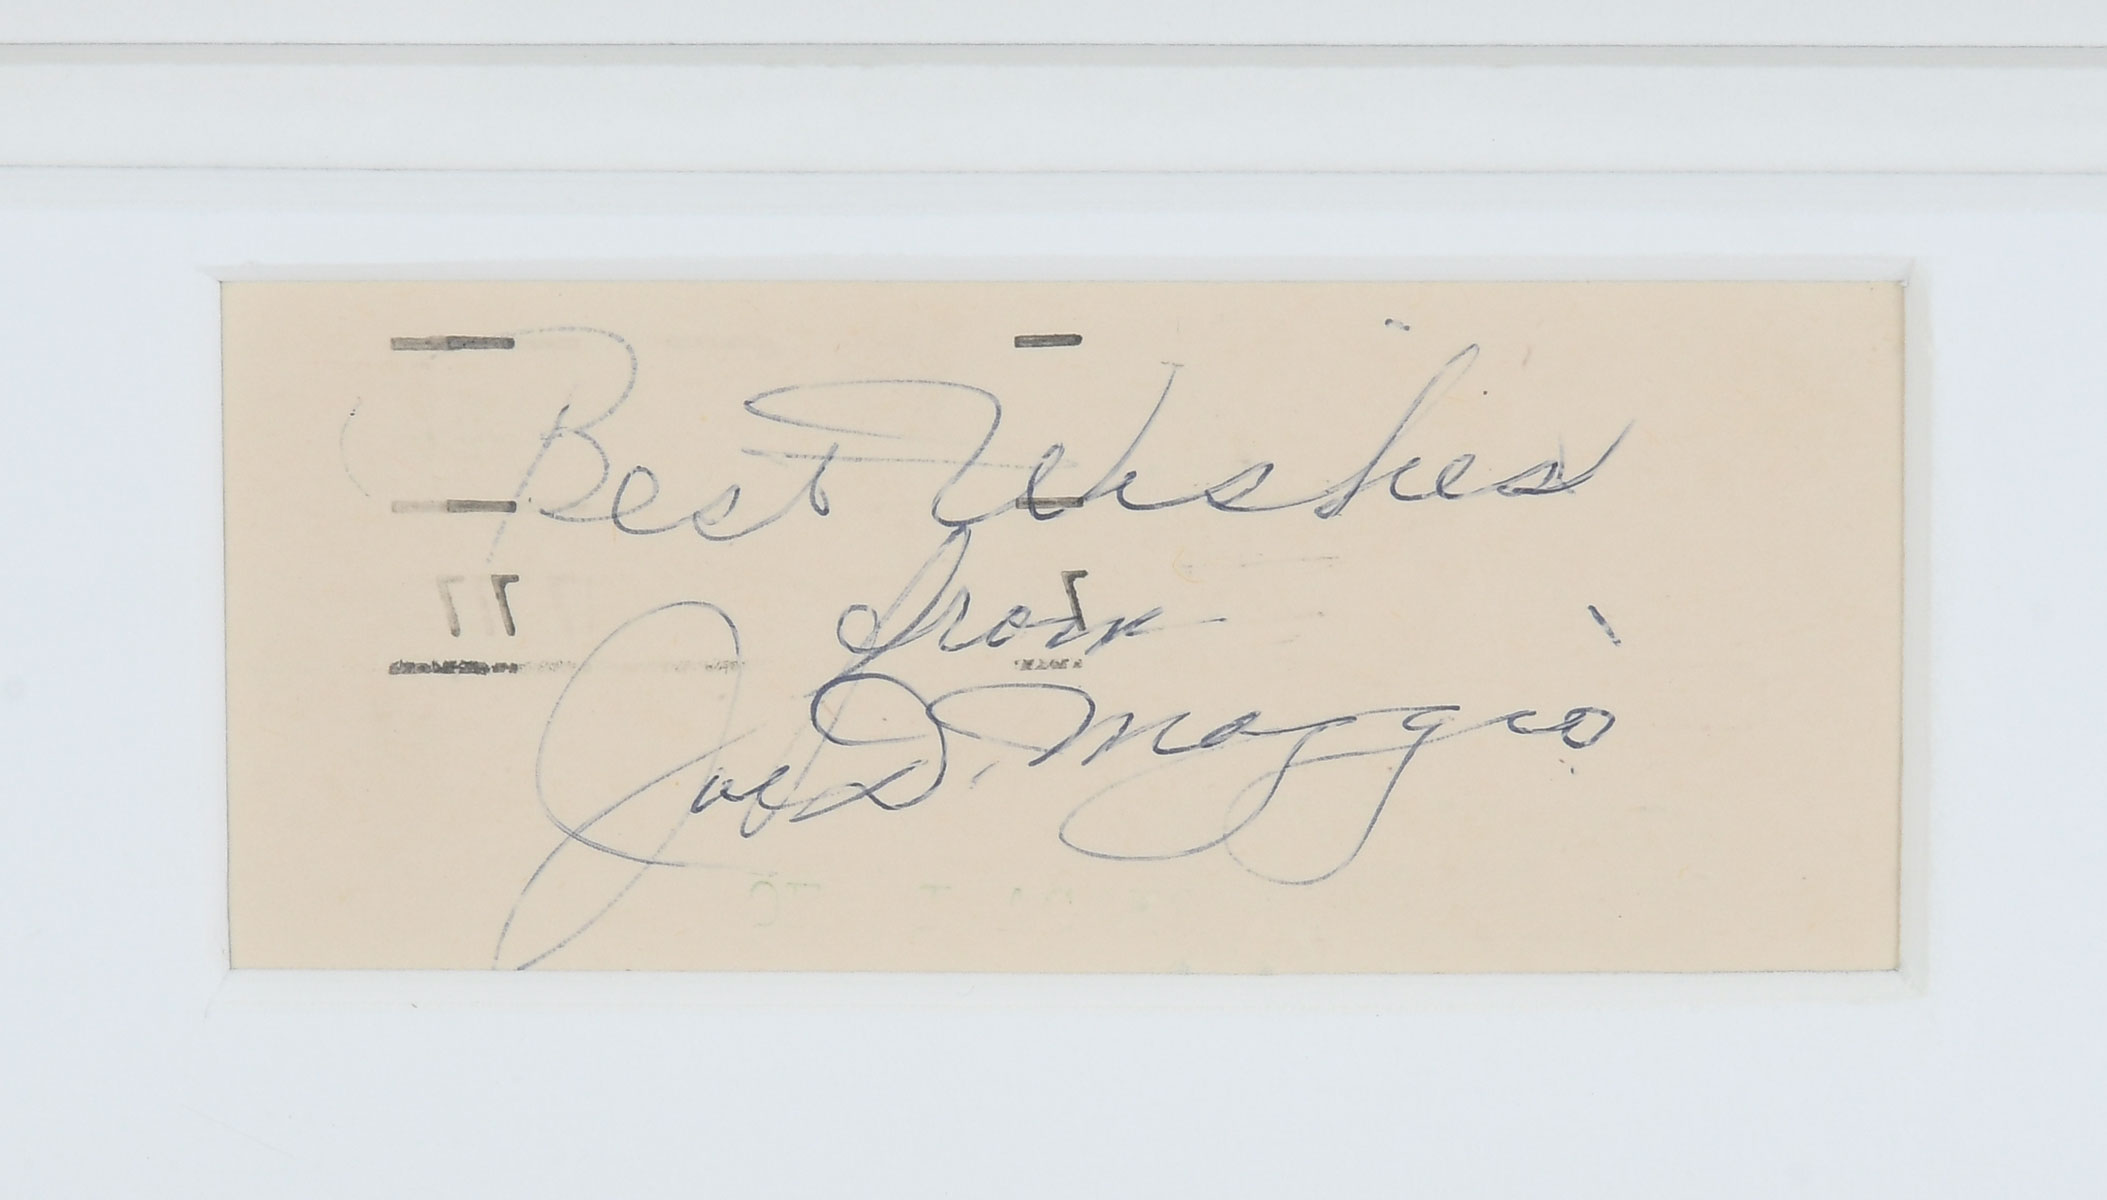 Best Wishes
from
Joe Di Maggio